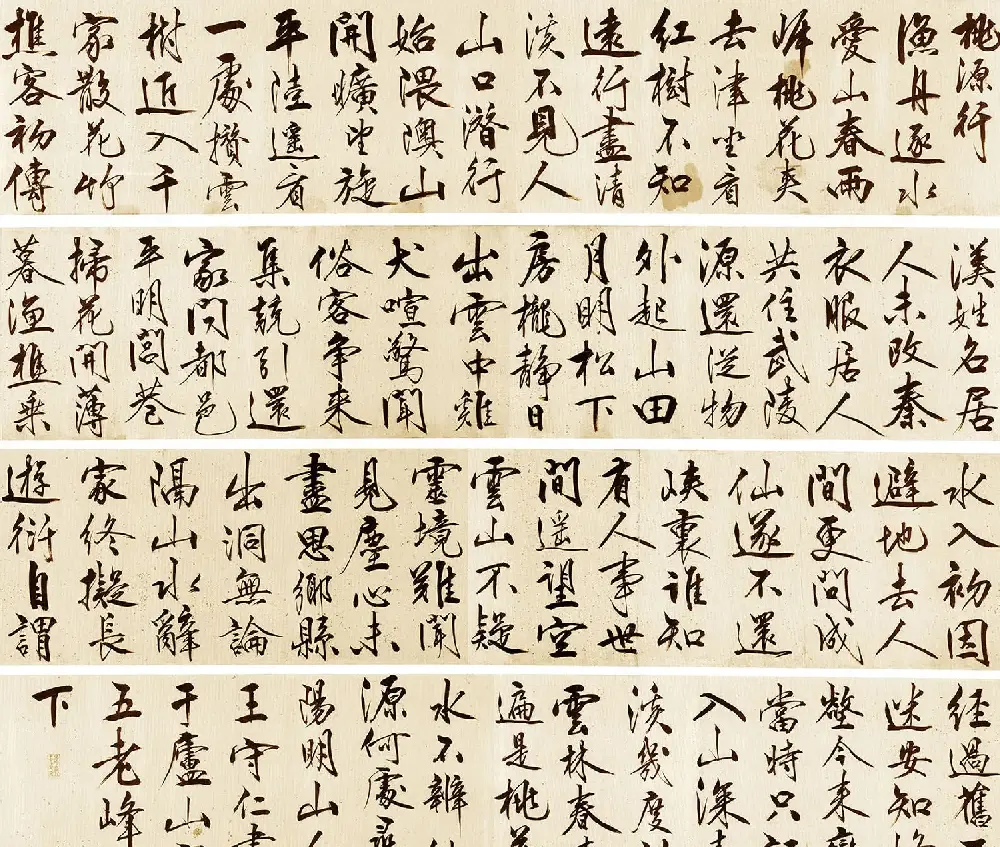 桃源行
漁舟逐水
愛山春兩
岸桃花夾
去津坐看
紅樹不知
遠行盡清
溪不見人
山口潛行
始隈隩山
開曠望旋
平陸遥看
一處攢雲
樹近入千
家散花竹
樵客初傳
漢姓名居
人未改秦
衣服居人
共住武陵
源還從物
外起山田
月明松下
房櫳靜日
出雲中雞
犬喧驚聞
俗客争来
集競引還
家問都邑
平明閭巷
掃花開薄
暮漁樵乘
水入初因
避地去人
間更問成
仙遂不還
峽裏誰知
有人事世
間遥望空
雲山不疑
靈境難聞
見塵心未
盡思鄉縣
出洞無論
隔山水辭
家終擬長
遊衍自謂
經過舊
迷安知
壑今来
當時只
入山深
溪幾度
雲林春
遍是桃
水不辨
源何處
陽明山
王守仁書
于廬山
五老峰
下